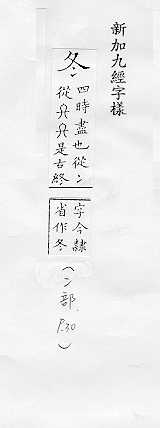 新加九經字樣
冬
四時盡也從冫
從𠔾𠔾是古終
字今隸
省作冬
(冫部、P.30)